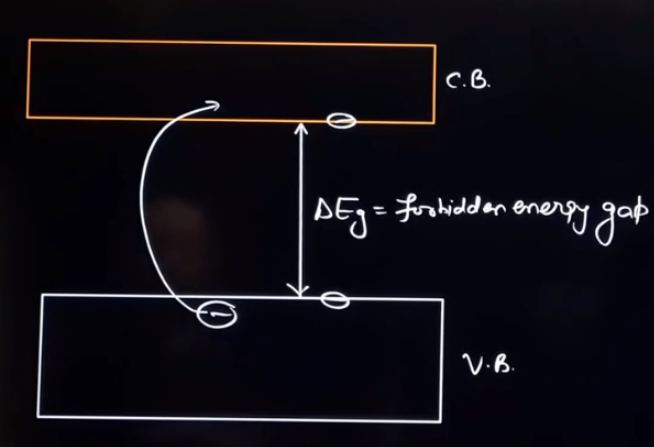 C.B.
ΔEg = forbidden energy gap
V.B.